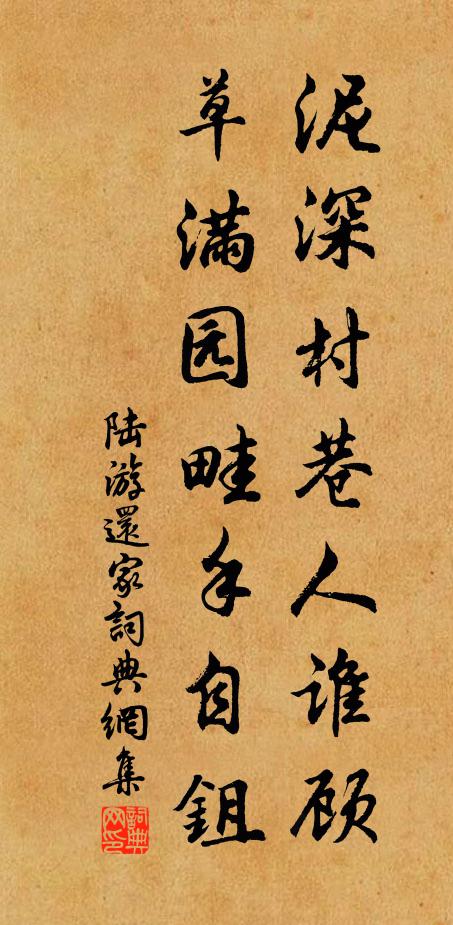 泥深村巷人谁顾
草满园畦手自鉏
陆游還家詞典網集
詞典网印